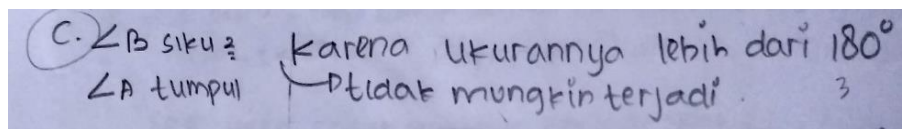 C. ∠B siku2 karena ukurannya lebih dari 180°
∠A tumpul tidak mungkin terjadi. 3